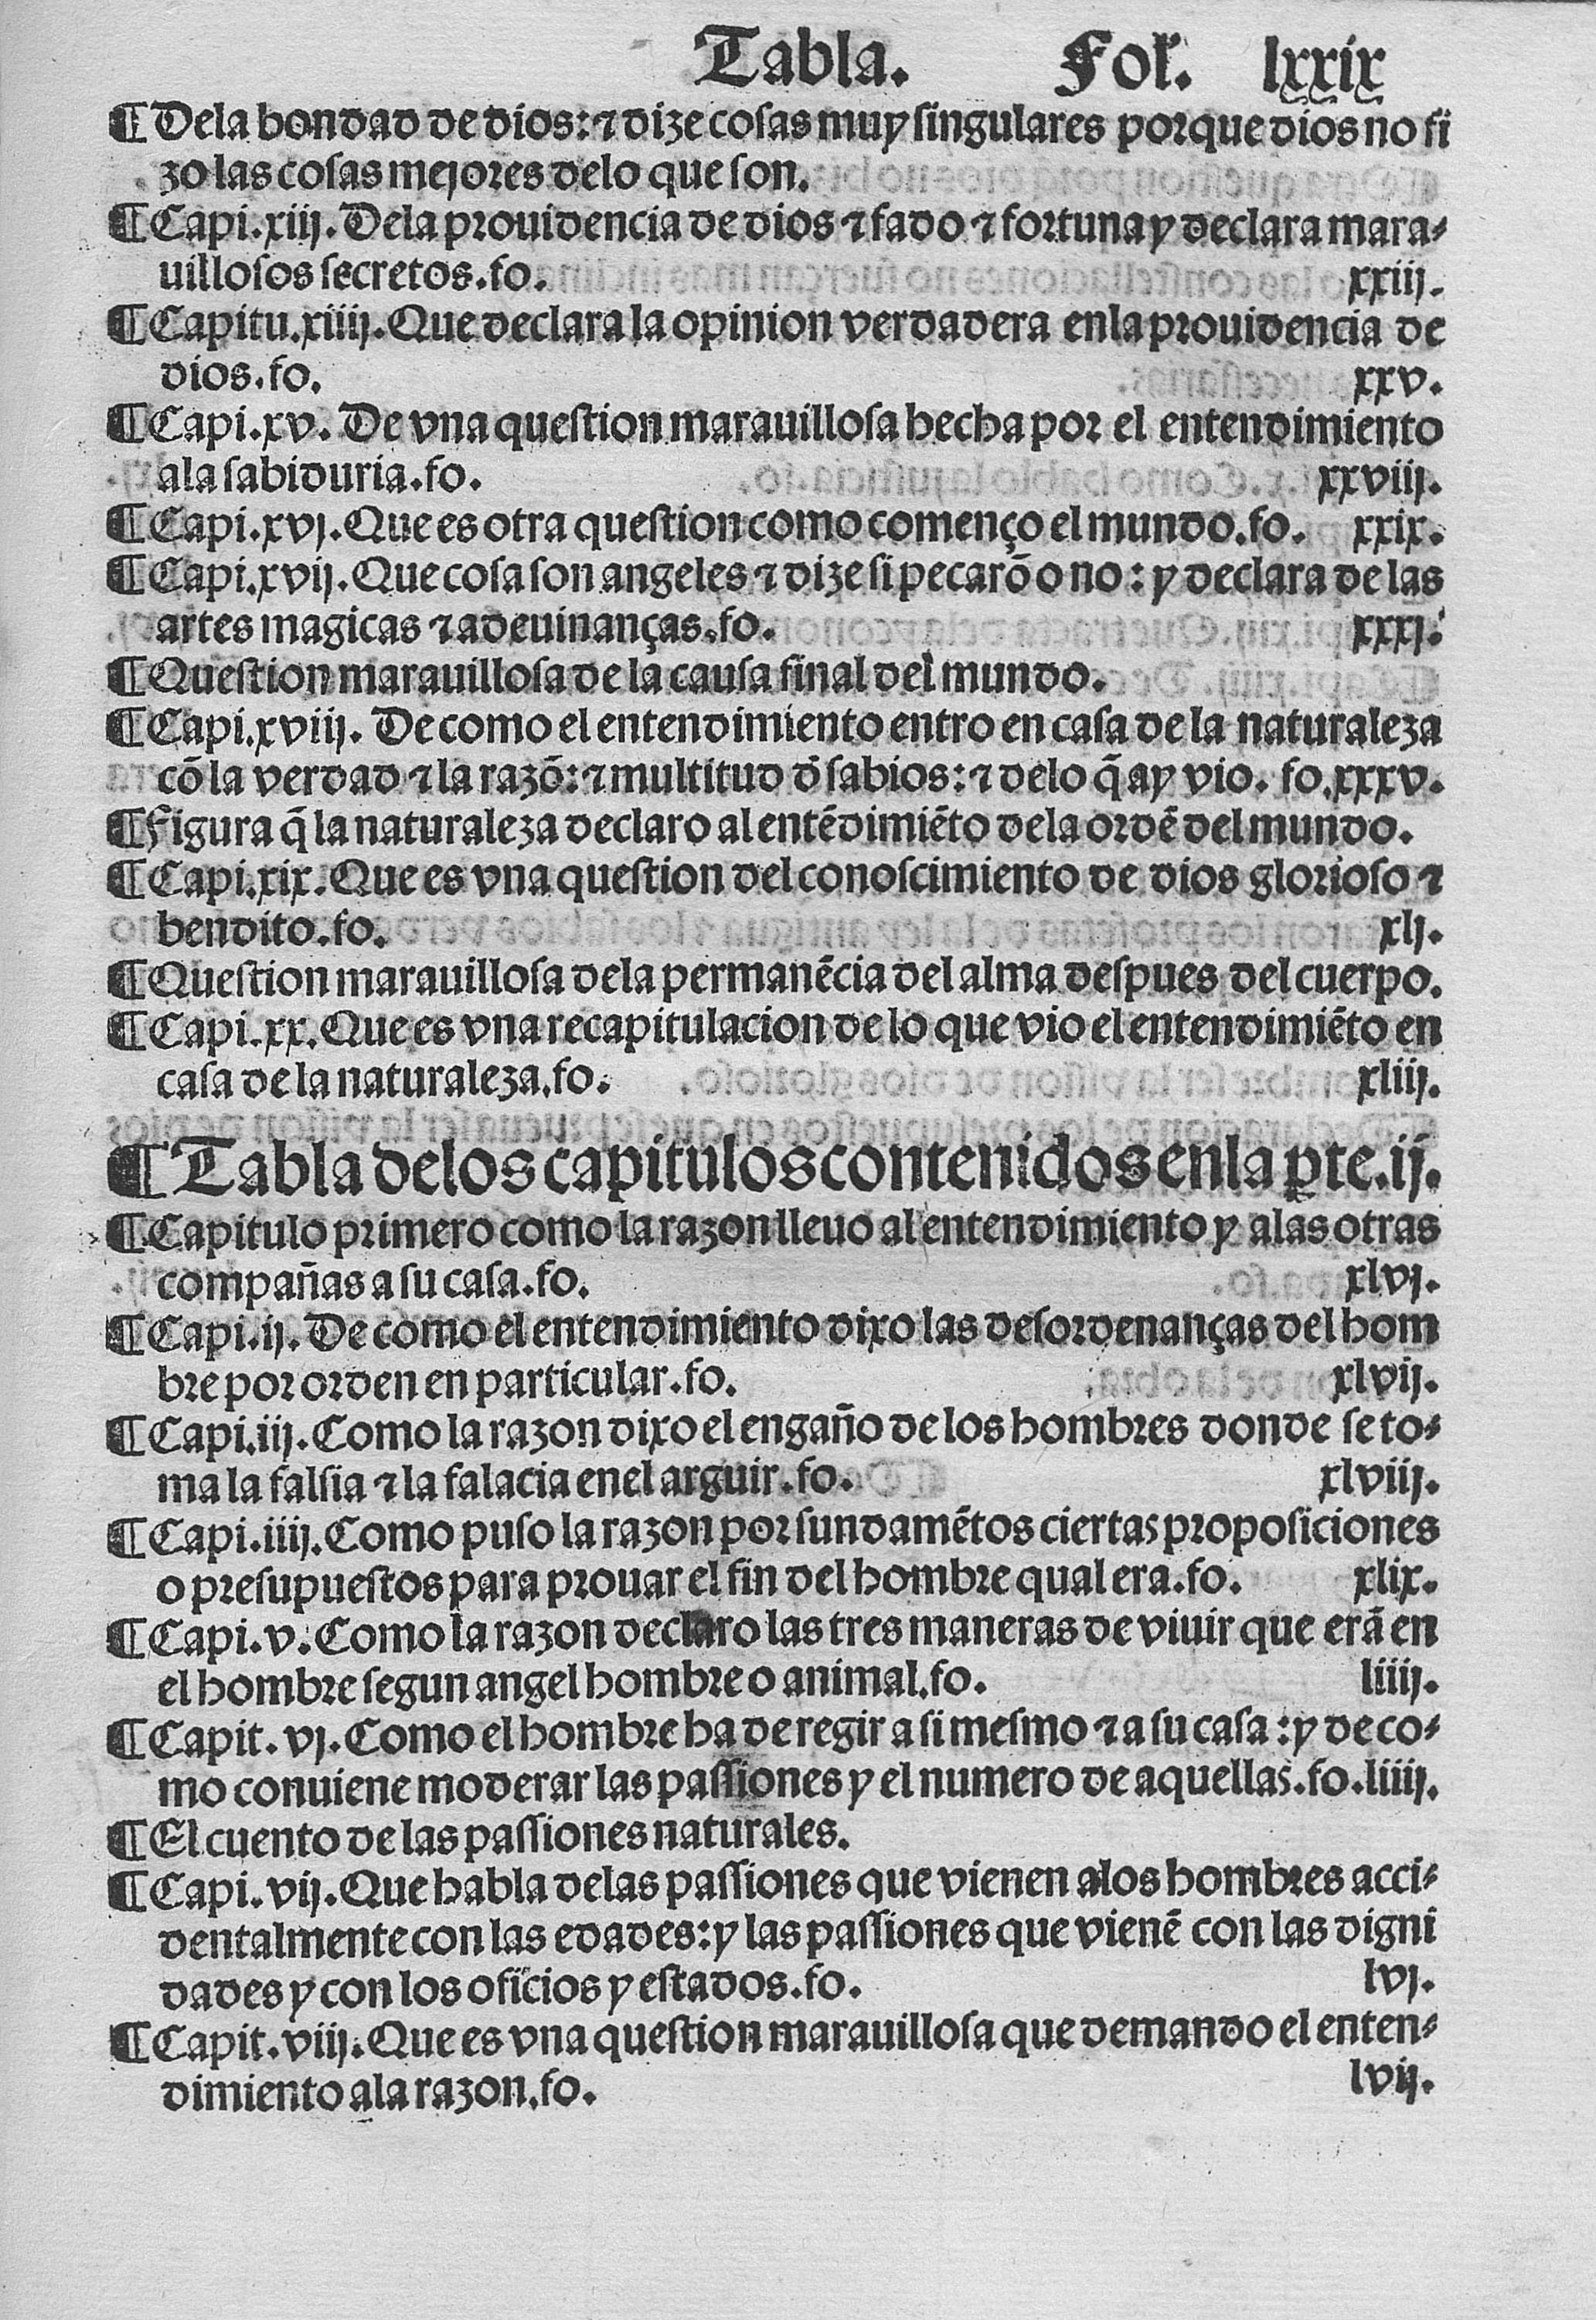 Tabla. Fol. lxxix
¶ Dela bondad de dios: ⁊ dize cosas muy singulares porque dios no fi
zo las cosas mejores delo que son.
¶ Capi.xiij. Dela prouidencia de dios ⁊ fado ⁊ fortuna y declara mara-
uillosos secretos.fo. xxiij.
¶ Capitu.xiiij. Que declara la opinion verdadera enla prouidencia de
dios.fo. xxv.
¶ Capi.xv. De vna question marauillosa hecha por el entendimiento
ala sabiduria.fo. xxviij.
¶ Capi.xvj. Que es otra question como començo el mundo.fo. xxix.
¶ Capi.xvij. Que cosa son angeles ⁊ dize si pecarõ o no: y declara de las
artes magicas ⁊ adeuinanças.fo. xxxj.
¶ Question marauillosa de la causa final del mundo.
¶ Capi.xviij. De como el entendimiento entro en casa de la naturaleza
cõ la verdad ⁊ la razõ: ⁊ multitud d̃ sabios: ⁊ delo q̃ ay vio. fo.xxxv.
¶ Figura q̃ la naturaleza declaro al entẽdimiẽto dela ordẽ del mundo.
¶ Capi.xix. Que es vna question del conoscimiento de dios glorioso ⁊
bendito.fo. xlj.
¶ Question marauillosa dela permanẽcia del alma despues del cuerpo.
¶ Capi.xx. Que es vna recapitulacion de lo que vio el entendimiẽto en
casa de la naturaleza.fo. xliij.
¶ Tabla delos capitulos contenidos enla ꝑte.ij.
¶ Capitulo primero como la razon lleuo al entendimiento y alas otras
compañas a su casa.fo. xlvj.
¶ Capi.ij. De como el entendimiento dixo las desordenanças del hom
bre por orden en particular.fo. xlvij.
¶ Capi.iij. Como la razon dixo el engaño de los hombres donde se to-
ma la falsia ⁊ la falacia enel arguir.fo. xlviij.
¶ Capi.iiij. Como puso la razon por sundamẽtos ciertas proposiciones
o presupuestos para prouar el fin del hombre qual era.fo. xlix.
¶ Capi.v. Como la razon declaro las tres maneras de viuir que erã en
el hombre segun angel hombre o animal.fo. liiij.
¶ Capit.vj. Como el hombre ha de regir a si mesmo ⁊ a su casa: y de co-
mo conuiene moderar las passiones y el numero de aquellas.fo.liiij.
¶ El cuento de las passiones naturales.
¶ Capi.vij. Que habla delas passiones que vienen alos hombres acci-
dentalmente con las edades: y las passiones que vienẽ con las digni
dades y con los oficios y estados.fo. lvj.
¶ Capit.viij. Que es vna question marauillosa que demando el enten-
dimiento ala razon.fo. lvij.